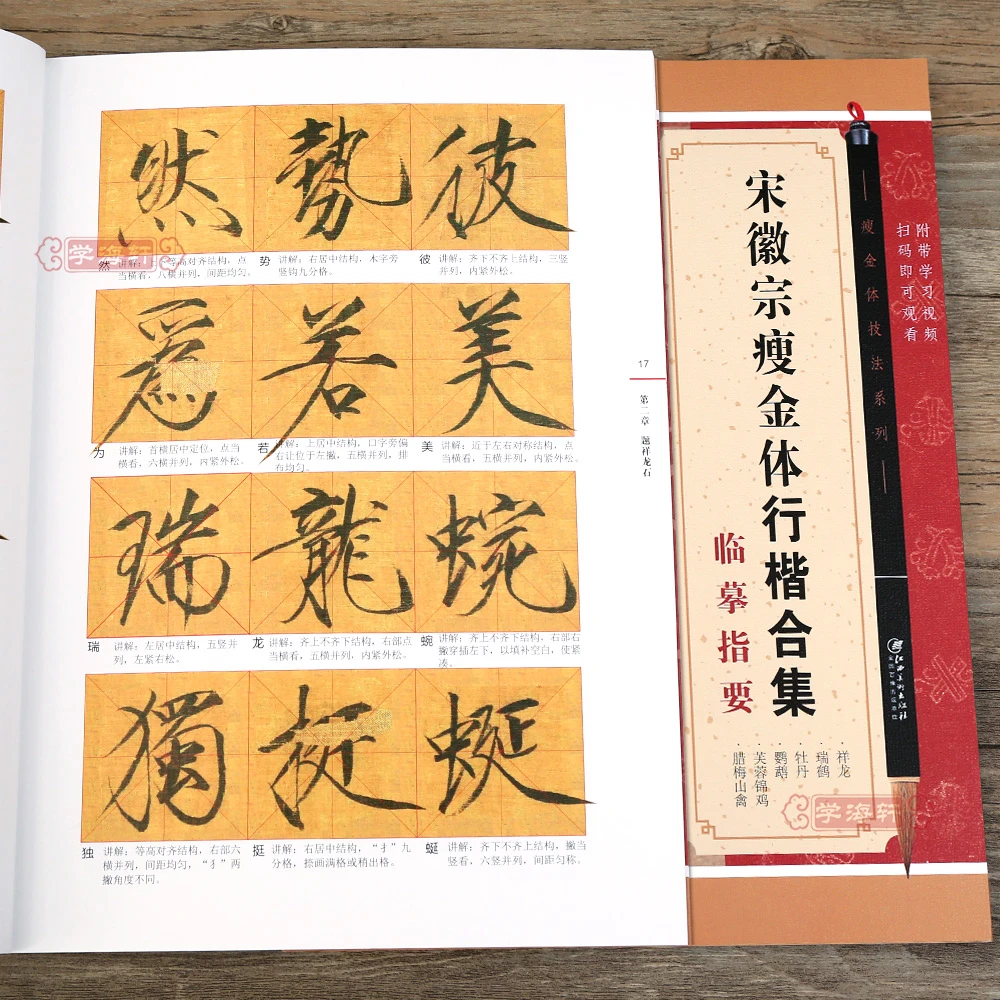 然 勢 彼
学海轩
然 讲解：等高对齐结构，点
当横看，八横并列，间距均匀。
势 讲解：右居中结构，木字旁
竖钩九分格。
彼 讲解：齐下不齐上结构，三竖
并列，内紧外松。
爲 若 美
为 讲解：首横居中定位，点当
横看，六横并列，内紧外松。
若 讲解：上居中结构，口字旁偏
右让位于左撇，五横并列，排
布均匀。
美 讲解：近于左右对称结构，点
当横看，五横并列，内紧外松。
瑞 龍 蜿
瑞 讲解：左居中结构，五竖并
列，左紧右松。
龙 讲解：齐上不齐下结构，右部点
当横看，五横并列，内紧外松。
蜿 讲解：齐上不齐下结构，右部右
撇穿插左下，以填补空白，使紧
凑。
獨 挺 蜒
独 讲解：等高对齐结构，右部六
横并列，间距均匀，“犭”两
撇角度不同。
挺 讲解：右居中结构，“扌”九
分格，捺画满格或稍出格。
蜒 讲解：齐下不齐上结构，撇当
竖看，六竖并列，间距匀称。
17
第二章 题祥龙石
附带学习视频
扫码即可观看
瘦金体技法系列
宋徽宗瘦金体行楷合集
临摹指要
·祥龙
·瑞鹤
·牡丹
·鹦鹉
·芙蓉锦鸡
·腊梅山禽
江西美术出版社
学海轩